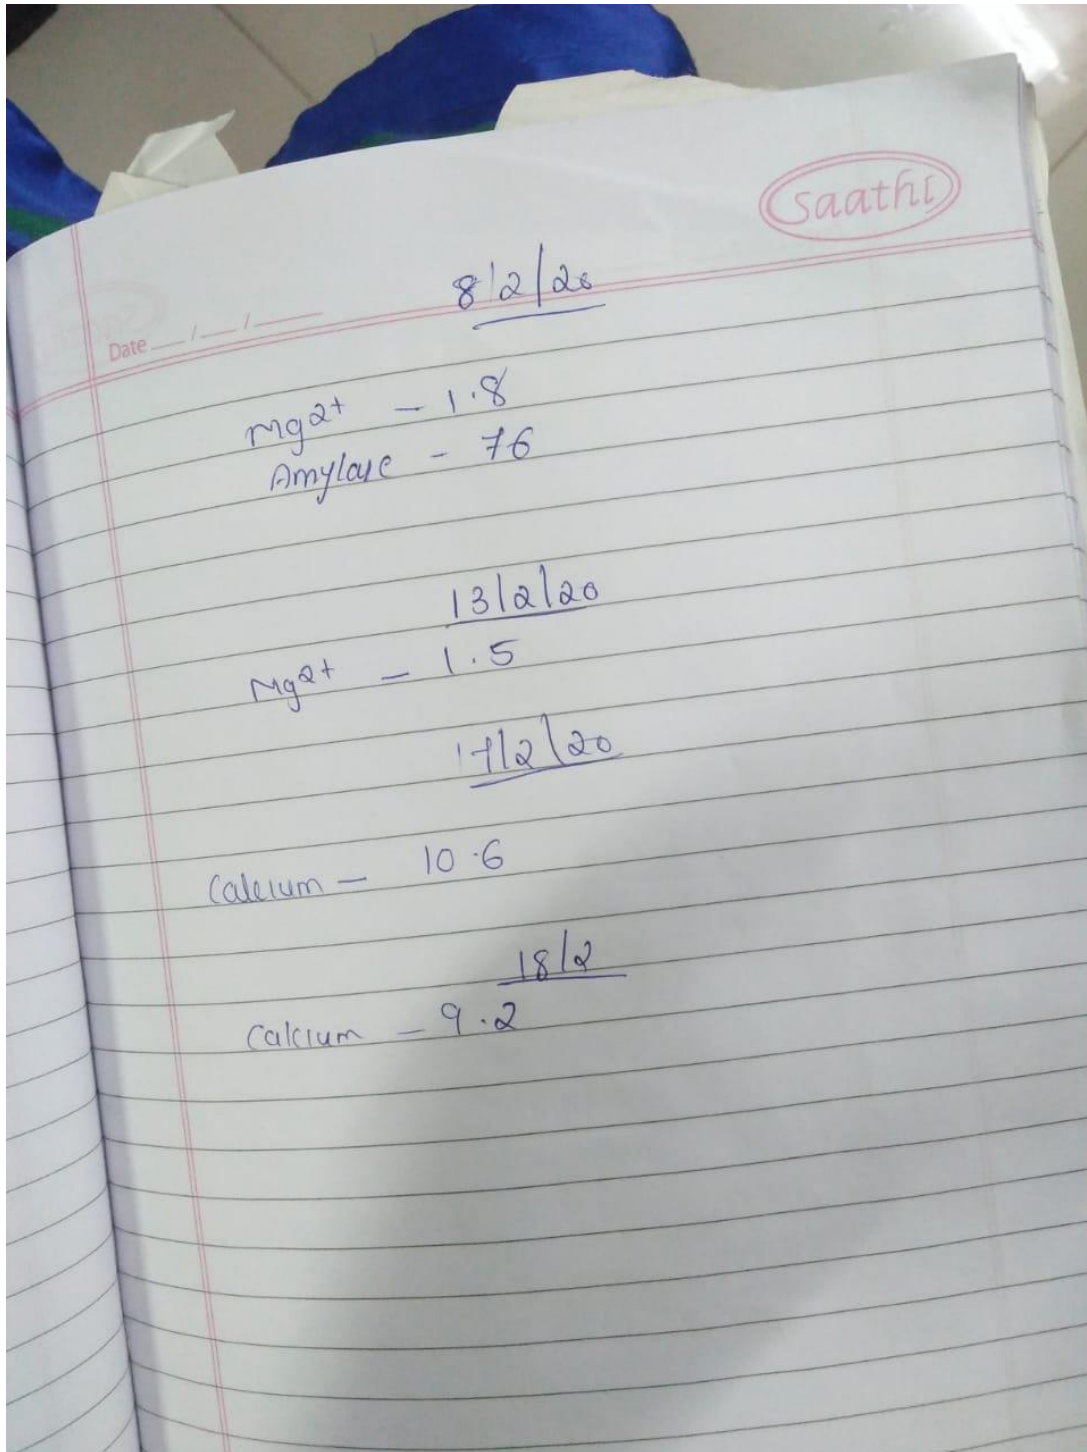 Saathi
8/2/20
Date __/__/____
Mg2+ - 1.8
Amylase - 76
13/2/20
Mg2+ - 1.5
17/2/20
Calcium - 10.6
18/2
Calcium - 9.2